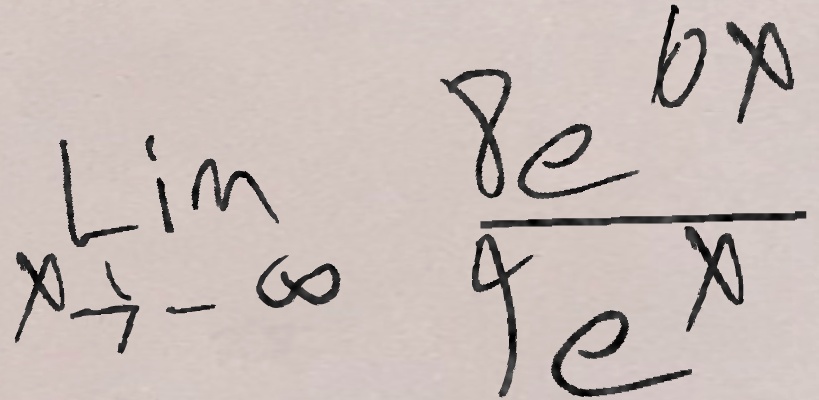 Lim x→-∞ 8e^{6x} / 9e^x